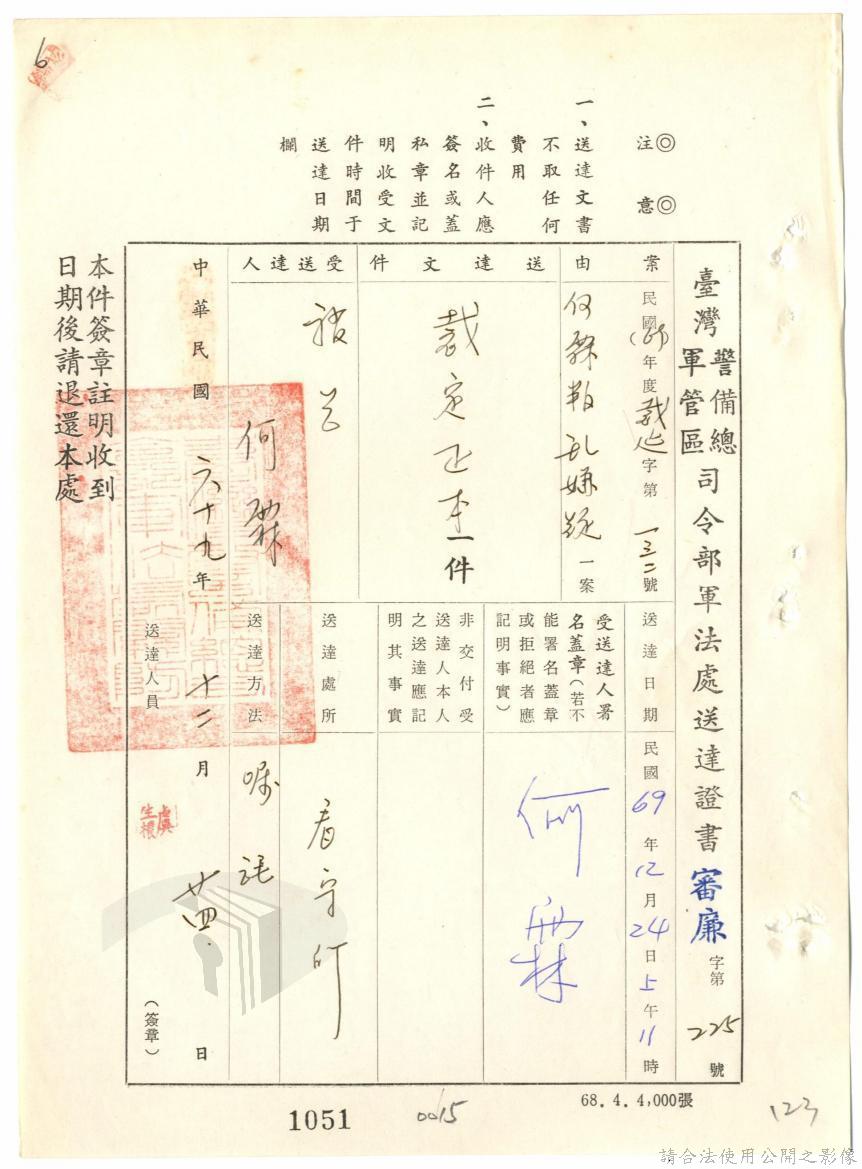 6
注意
一、送達文書
不取任何
費用
二、收件人應
簽名或蓋
私章並記
明收受文
件時間于
送達日期
欄
臺灣警備總軍管區司令部軍法處送達證書 審廉字第225號
案由
民國(69)年度裁字第一三二號
何霖叛乱嫌疑一案
送達文件
裁定正本一件
受送達人
被告
何霖
送達日期
民國69年12月24日上午11時
受送達人署
名蓋章(若不
能署名蓋章
或拒絕者應
記明事實)
何霖
非交付受
送達人本人
之送達應記
明其事實
送達處所
看守所
送達方法
嘱託
中華民國六十九年十二月廿四日
送達人員
虞生根
(簽章)
本件簽章註明收到
日期後請退還本處
68.4.4,000張
1051
0015
123
請合法使用公開之影像